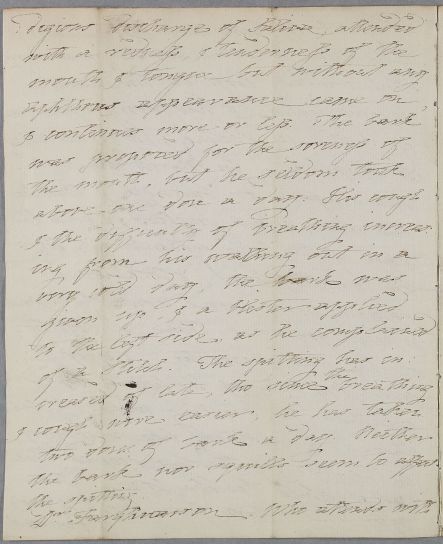 digious discharge of Saliva, attended
with a redness & tenderness of the
mouth & tongue but without any
aphthous appearance came on,
& continues more or less. The bark
was proposed for the soreness of
the mouth, but he seldom took
above one dose a day. His cough
& the difficulty of breathing increas
ing from his walking out in a
very cold day, the bark was
given up & a blister applied
to the left side, as he complained
of a stitch. The spitting has in:
creased of late, tho' since the breathing
& cough were easier, he has taken
two doses of bark a day. Neither
the bark nor squills seem to affect
the spitting.
Dr. Farquharson who attends with